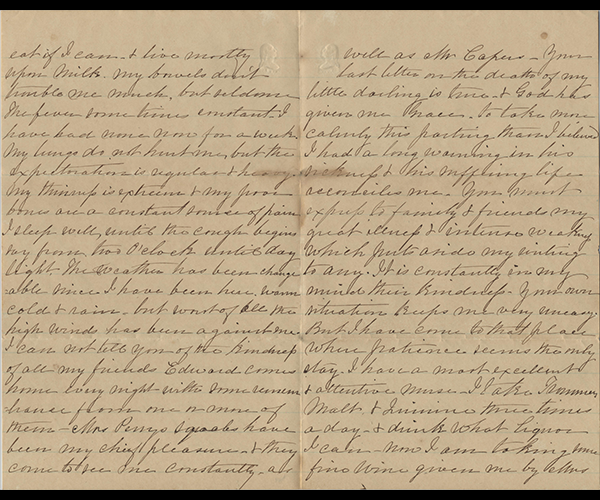 eat if I can - & live mostly
upon Milk. My bowels don't
trouble me much, but seldom
the fever sometimes constant. I
have had none now for a week
My lungs do not hurt me, but the
expectoration is regular & heavy.
My thinness is extreme & my poor
bones are a constant source of pain
I sleep well, until the cough begins
say from two O'clock until day
light. The weather has been change
able since I have been here, warm
cold & rain - but worst of all the
high wind has been against me.
I can not tell you of the kindness
of all my friends Edward comes
home every night with some remem
brance from one or more of
them - Mrs Perrys have
been my chief pleasure - & they
come to see me constantly, as
well as Mr Capers - Your
last letter on the death of my
little darling is true - & God has
given me Grace to take more
calmly this parting than I believed
I had a long warning in his
sickness & his suffering life
reconciles me. You must
express to family & friends my
great illness & intense weakness
which puts aside my writing
to any. It is constantly in my
mind their kindness. Your own
situation keeps me very uneasy.
But I have come to that place
where patience seems the only
stay. I have a most excellent
& attentive nurse. I take
Malt & Quinine three times
a day - & drink what liquor
I can - now I am taking some
fine wine given me by Mrs